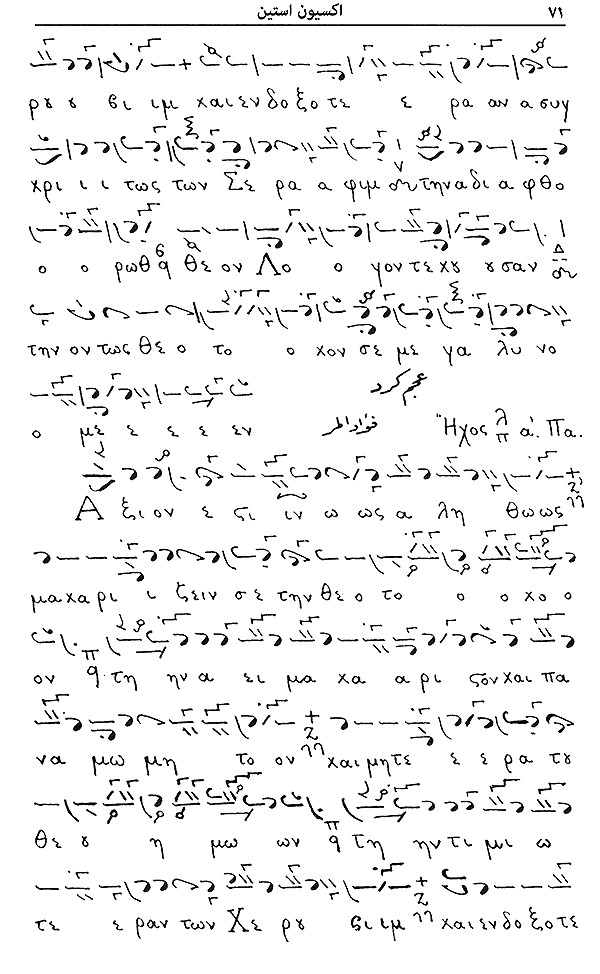 ٧١ اكسيون استين
ρου ϛι ιμ και ενδοξοτε ε ρα αν α συγ
χρι ι ι τως των Σε ρα α φιμ την α δι α φθο
ο ο ρωθ θε ον Λο ο γον τε κου ου σαν
την ον τως θε ο το ο κον σε με γα λυ νο
عجم كرد
ο με ε ε ε ε εν Ἦχος α. Πα.
Α ξι ον ε ϛι ιν ω ως α λη θω ως
μα κα ρι ι ζειν σε την θε ο το ο ο κο ο
ον τη ην α ει μα κα α ρι ϛον και πα
να μω μη το ον και μη τε ε ε ρα του
θε ου η μω ων τη ην τι μι ω
τε ε ραν των Χε ρου ϛι ιμ και ενδοξοτε